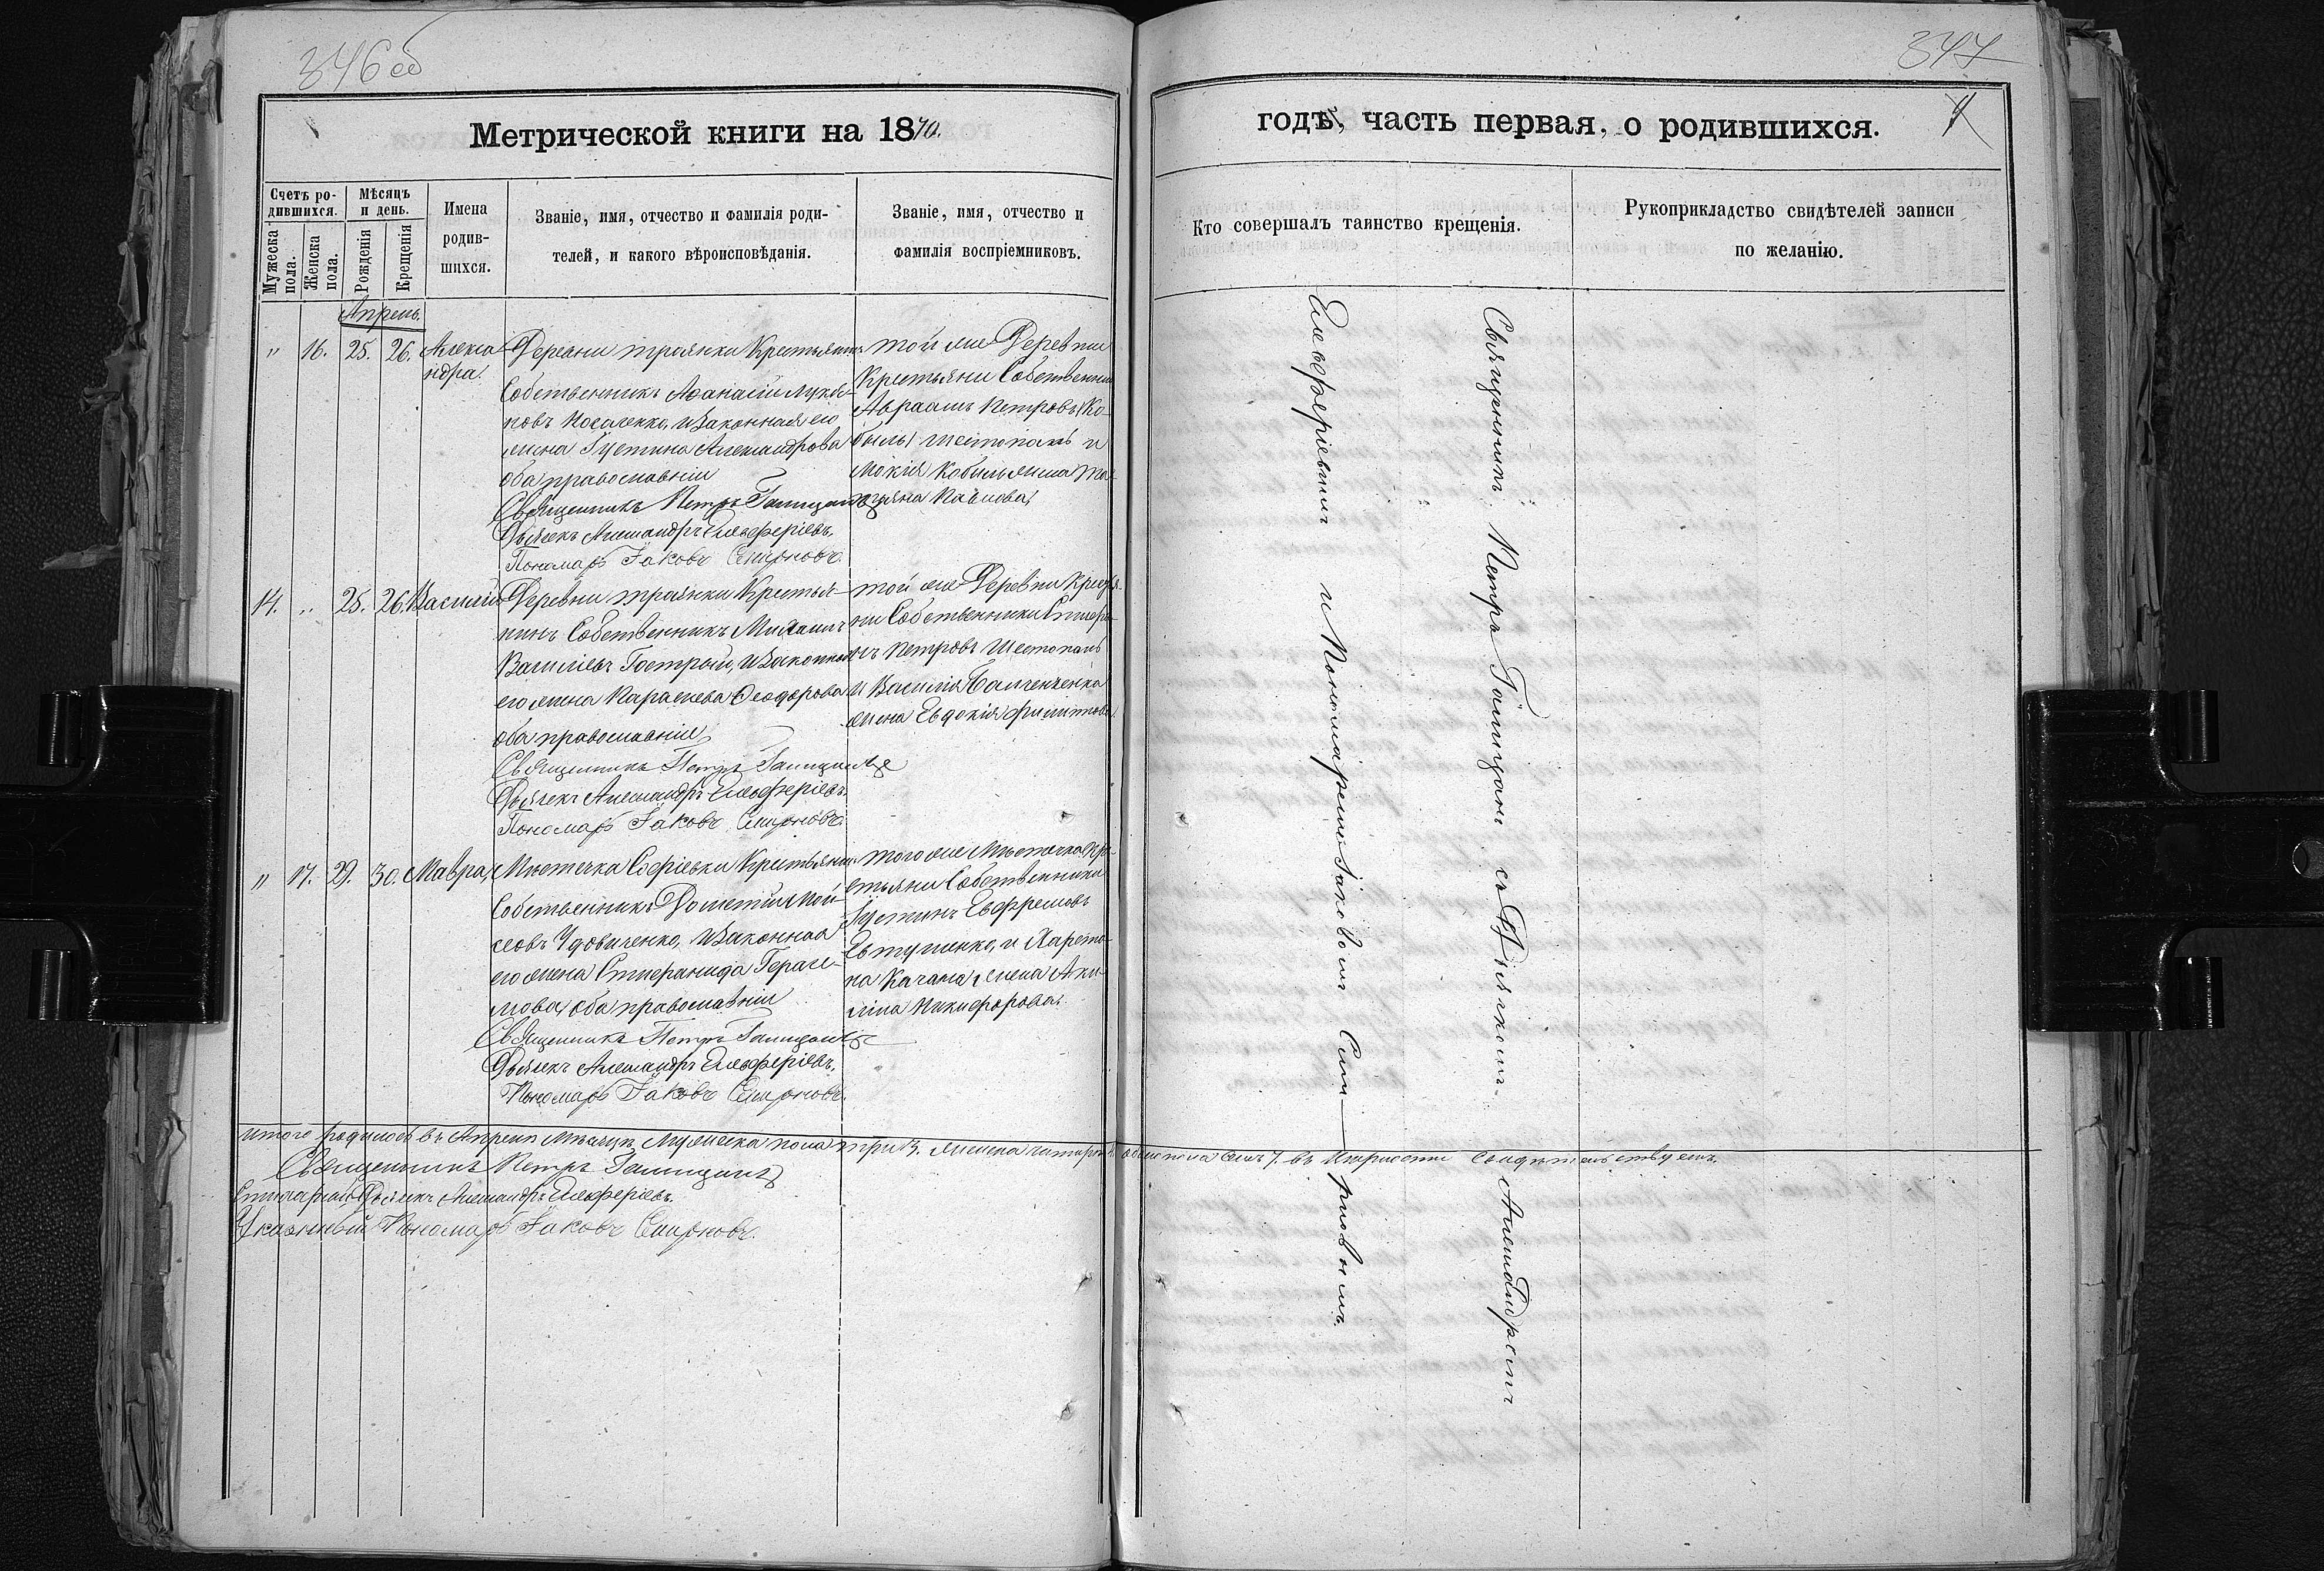 346 об
Метрической книги на 1870.
Счетъ ро-
дившихся.
Мужеска
пола.
Женска
пола.
Мѣсяцъ
и день.
Рожденія
Крещенія
Имена
родив-
шихся.
Званіе, имя, отчество и фамилія роди-
телей, и какого вѣроисповѣданія.
Званіе, имя, отчество и
фамилія воспріемниковъ.
Апрель.
" 16. 25. 26. Алекса
ндра.
Деревни Троянки Крестьянин
Собственникъ Афанасій
Косаленко, и Законная его
жена Іустина Александрова
оба православніи
Священникъ Петръ Галищанъ
Дьячекъ Александръ Елевферіевъ.
Пономарь Іаковъ Смирновъ.
той же Деревни
Крестьяни Собственники
Авраамъ Петровъ
Шестопалъ и
Мокія Кобыль жена
Павлова
14. .. 25. 26. Василій
Деревни Троянки Крестья-
нинъ Собственникъ Михаилъ
Василіевъ Гострый, и Законная
его жена Параскева Феодорова
оба православніи
Священникъ Петръ Галищанъ
Дьячекъ Александръ Елевферіевъ.
Пономарь Іаковъ Смирновъ.
той же Деревни Крестья-
ни Собственники
Петровъ Шестопалъ
и Василія
жена Евдокія Филиппова
" 17. 29. 30. Мавра,
Мѣстечка Софіевки Крестьянинъ
Собственникъ Дометій Мой-
сеовъ Удовиченко, и Законная
его жена Стиеранида Гераси-
мова, оба православніи
Священникъ Петръ Галищанъ
Дьячекъ Александръ Елевферіевъ.
Пономарь Іаковъ Смирновъ.
того же Мѣстечка Кре-
стьяни Собственники
Іустинъ Евфремовъ
Евтушенко, и Харито-
на Качана жена Аки-
лина Никифорова.
итого родилось въ Апрелѣ Мѣсяцѣ, Мужеска пола три 3. женска четыре обоего пола семь 7. въ итрности свидѣтельствуемъ.
Священникъ Петръ Галищанъ
Дьячекъ Александръ Елевферіевъ.
Указнный Пономарь Іаковъ Смирновъ.
347
годъ, часть первая, о родившихся.
Кто совершалъ таинство крещенія.
Рукоприкладство свидѣтелей записи
по желанію.
Священникъ Петръ Галищанъ съ Дьячкомъ Александромъ
Елевферіевимъ и Пономаремъ Іаковомъ Сми-рновымъ.